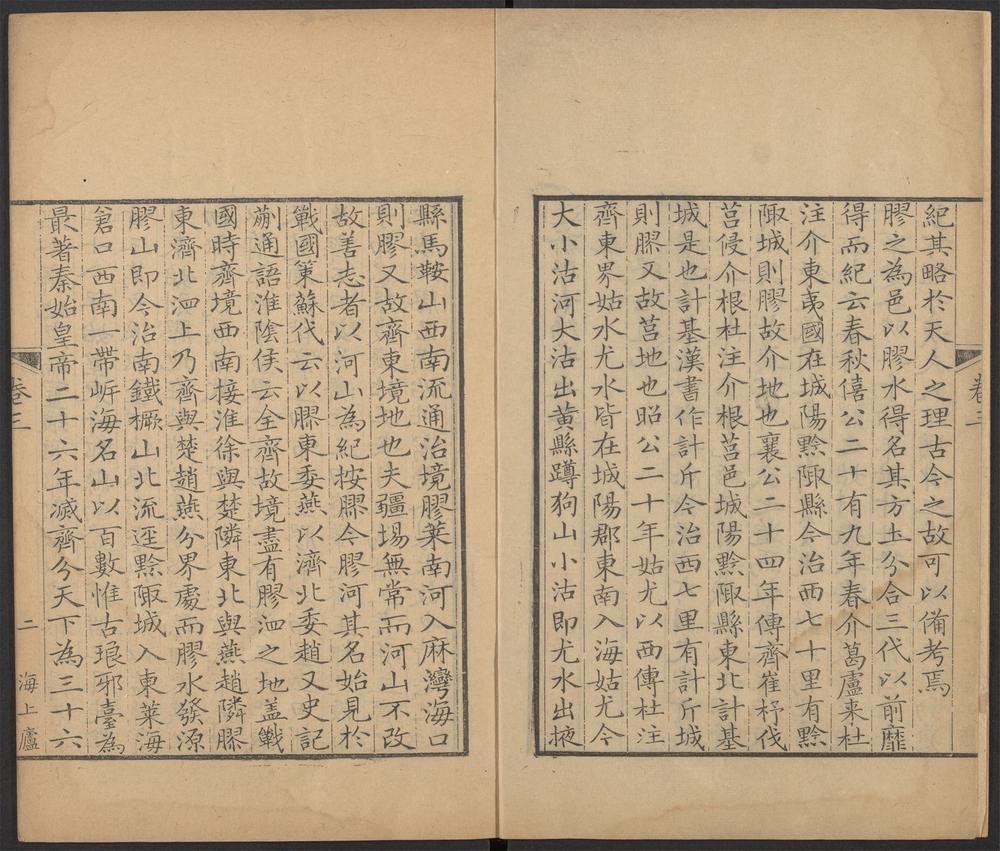 紀其略於天人之理古今之故可以備考焉
膠之為邑以膠水得名其方土分合三代以前靡
得而紀云春秋僖公二十有九年春介葛盧来杜
注介東夷國在城陽黔陬縣今治西七十里有黔
陬城則膠故介地也襄公二十四年傳齊崔杼伐
莒侵介根杜注介根莒邑城陽黔陬縣東北計基
城是也計基漢書作計斤今治西七里有計斤城
則膠又故莒地也昭公二十年姑尤以西傳杜注
齊東界姑水尤水皆在城陽郡東南入海姑尤今
大小沽河大沽出黄縣蹲狗山小沽即尤水出掖
卷三
縣馬鞍山西南流通治境膠莱南河入麻灣海口
則膠又故齊東境地也夫疆埸無常而河山不改
故善志者以河山為紀按膠今膠河其名始見於
戰國策蘇代云以膠東委燕以濟北委趙又史記
蒯通語淮陰侯云全齊故境盡有膠泗之地盖戰
國時齊境西南接淮徐與楚隣東北與燕趙隣膠
東濟北泗上乃齊與楚趙燕分界處而膠水發源
膠山即今治南鐵橛山北流逕黔陬城入東萊海
倉口西南一帶岈海名山以百數惟古琅邪臺為
最著秦始皇帝二十六年滅齊分天下為三十六
卷三
二
海上廬